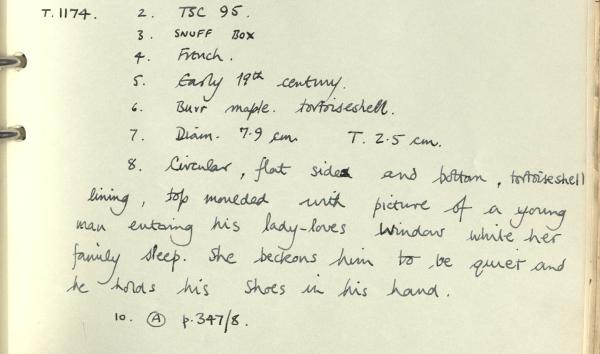 T.1174. 2. TSC 95.
3. SNUFF BOX
4. French.
5. Early 19th century.
6. Burr maple. tortoiseshell.
7. Diam. 7.9 cm. T. 2.5 cm.
8. Circular, flat sides and bottom, tortoiseshell
lining, top moulded with picture of a young
man entering his lady-loves window while her
family sleep. She beckons him to be quiet and
he holds his shoes in his hand.
10. Ⓐ p.347/8.